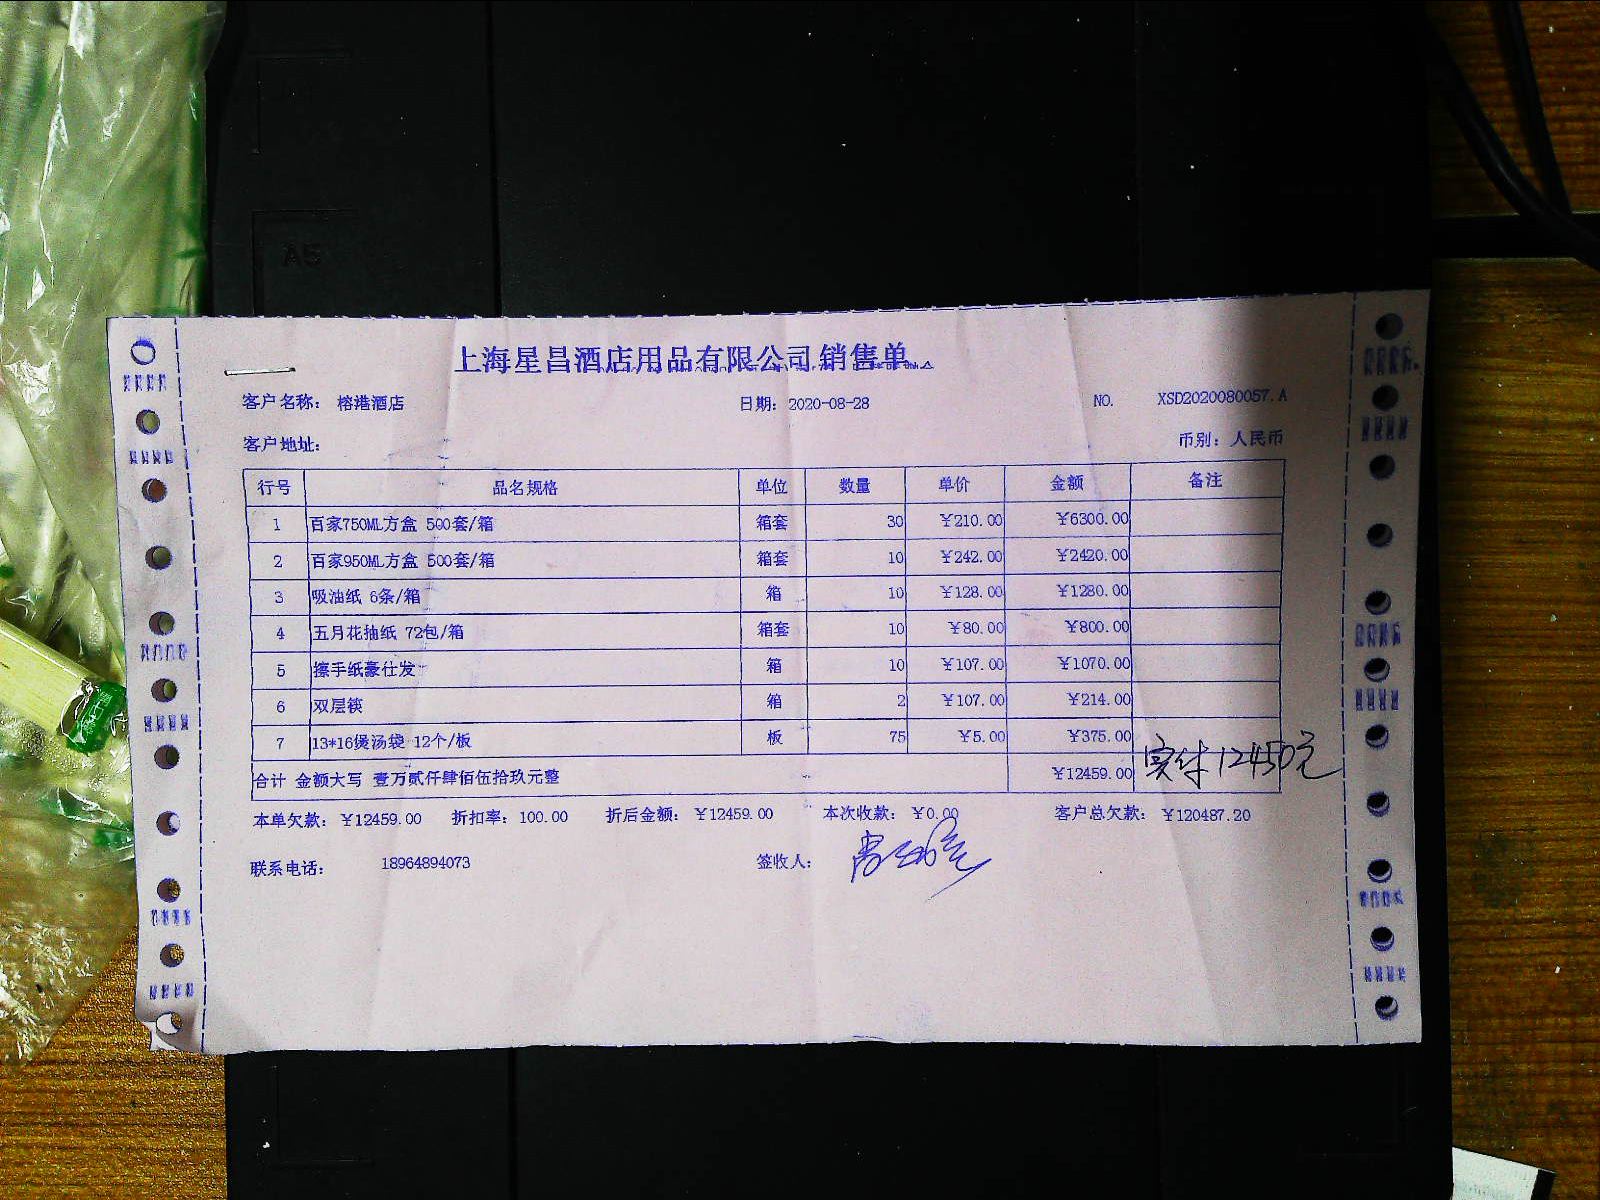 A5
上海星昌酒店用品有限公司销售单
客户名称: 榕港酒店 日期: 2020-08-28 NO. XSD2020080057.A
客户地址: 币别: 人民币
行号 品名规格 单位 数量 单价 金额 备注
1 百家750ML方盒 500套/箱 箱套 30 ¥210.00 ¥6300.00
2 百家950ML方盒 500套/箱 箱套 10 ¥242.00 ¥2420.00
3 吸油纸 6条/箱 箱 10 ¥128.00 ¥1280.00
4 五月花抽纸 72包/箱 箱套 10 ¥80.00 ¥800.00
5 擦手纸豪仕发 箱 10 ¥107.00 ¥1070.00
6 双层筷 箱 2 ¥107.00 ¥214.00
7 13*16煲汤袋 12个/板 板 75 ¥5.00 ¥375.00
合计 金额大写 壹万贰仟肆佰伍拾玖元整 ¥12459.00 实付12450元
本单欠款: ¥12459.00 折扣率: 100.00 折后金额: ¥12459.00 本次收款: ¥0.00 客户总欠款: ¥120487.20
联系电话: 18964894073 签收人: